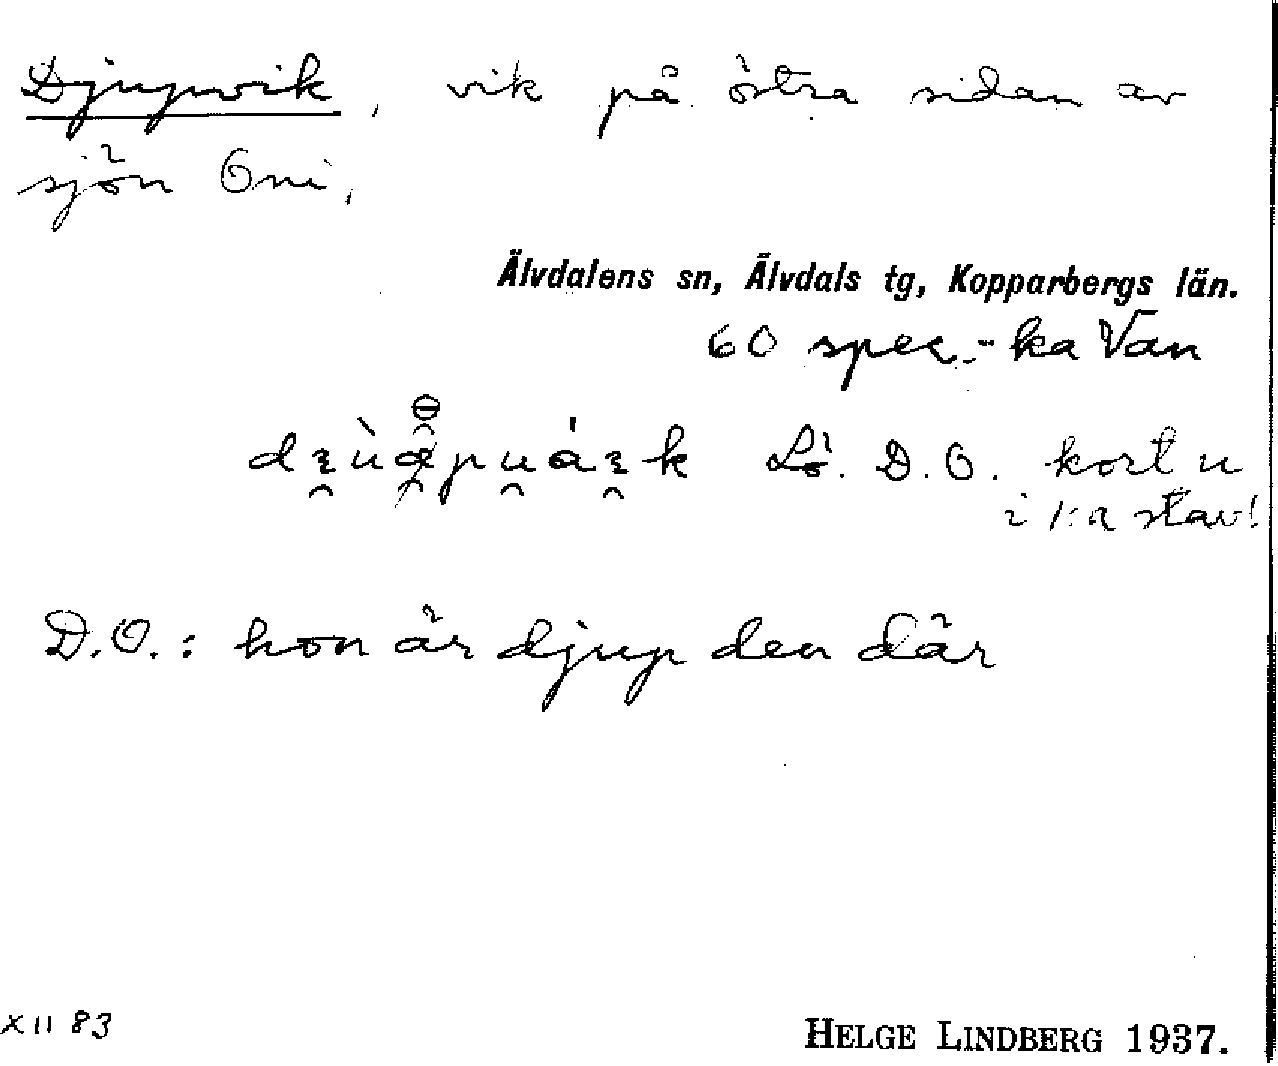 Djupvik, vik på östra sidan av
sjön Oni,
Älvdalens sn, Älvdals tg, Kopparbergs län.
60 spec.-ka Van
D.O. kort u
i 1:a stav!
D.O.: hon är djup den där
XII 83
HELGE LINDBERG 1937.